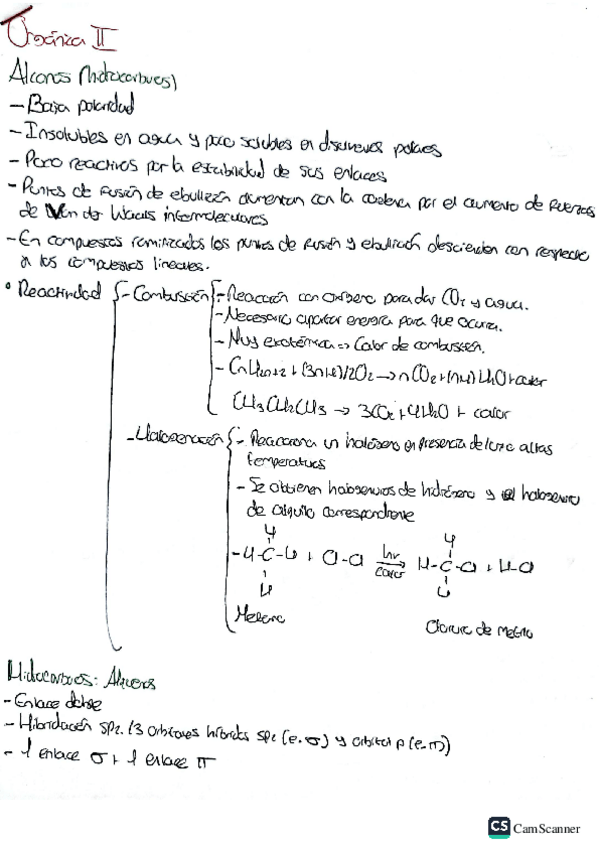 Orgánica II
Alcanos (hidrocarburos)
- Baja polaridad
- Insolubles en agua y poco solubles en disolventes polares
- Poco reactivos por la estabilidad de sus enlaces
- Puntos de fusión de ebullición aumentan con la cadena por el aumento de fuerzas
de Van der Waals intermoleculares
- En compuestos ramificados los puntos de fusión y ebullición descienden con respecto
a los compuestos lineales.
• Reactividad { - Combustión { - Reacción con oxígeno para dar CO2 y agua.
- Necesario aportar energía para que ocurra.
- Muy exotérmica => Calor de combustión.
- CnH2n+2 + (3n+1)/2O2 → nCO2 + (n+1)H2O + calor
CH3CH2CH3 → 3CO2 + 4H2O + calor
- Halogenación { - Reacciona un halógeno en presencia de luz o altas
temperaturas
- Se obtienen halogenuros de hidrógeno y el halogenuro
de alquilo correspondiente
H H
- H-C-H + Cl-Cl hv → H-C-Cl + H-Cl
calor
H H
Metano Cloruro de metilo
Hidrocarburos: Alquenos
- Enlace doble
- Hibridación sp2. (3 orbitales híbridos sp2 (e-σ) y orbital p (e-π)
- 1 enlace σ + 1 enlace π
CS CamScanner